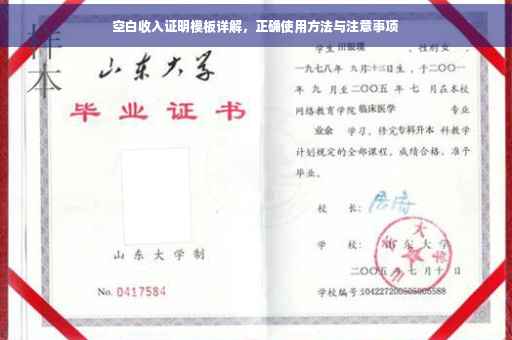 空白收入证明模板详解，正确使用方法与注意事项
样本
山东大学
毕业证书
山东大学制
No. 0417584
学生 性别女，
一九七八年 九月十三日生，于二〇〇一
年 九 月至二〇〇五 年 七 月在本校
网络教育学院临床医学 专业
业余 学习，修完专科升本 科教学
计划规定的全部课程，成绩合格，准予
毕业。
校 长：
学 校：山东大学
二〇〇五 年 七 月 十 日
学校编号: